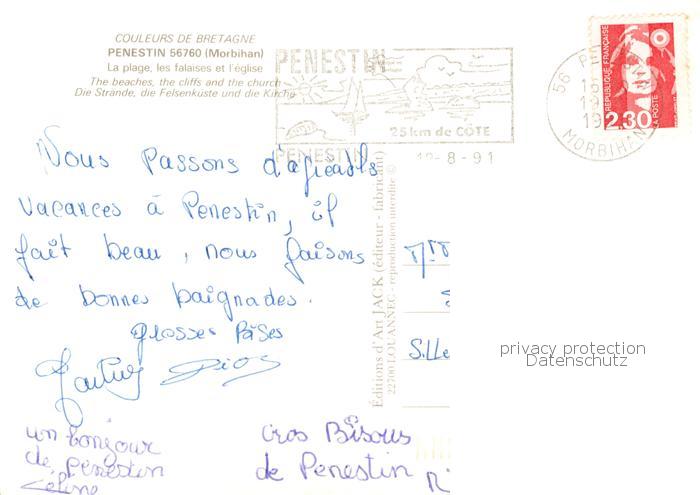 COULEURS DE BRETAGNE
PENESTIN 56760 (Morbihan)
La plage, les falaises et l'église
The beaches, the cliffs and the church
Die Strände, die Felsenküste und die Kirche
PENESTIN
25 km de CÔTE
PENESTIN
12-8-91
56 PE
MORBIHAN
REPUBLIQUE FRANÇAISE
2,30
LA POSTE
Nous passons d'agréables
vacances à Penestin, il
fait beau, nous faisons
de bonnes baignades.
grosses Bises
un bonjour
de penestin
Céline
Gros Bisous
de Penestin
Éditions d'Art JACK (éditeur - fabricant)
22700 LOUANNEC - reproduction interdite ©
Sille
privacy protection
Datenschutz